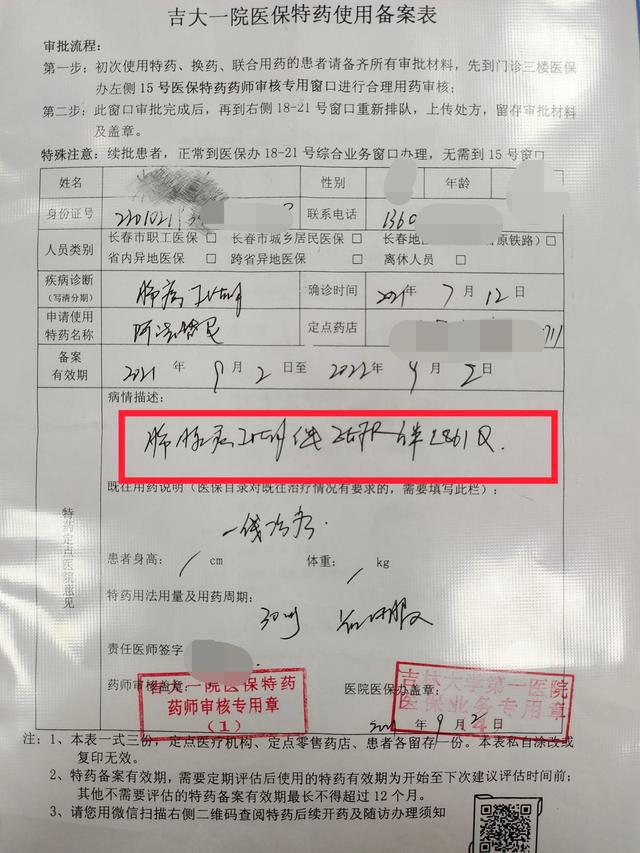 吉大一院医保特药使用备案表
审批流程：
第一步：初次使用特药、换药、联合用药的患者请备齐所有审批材料，先到门诊三楼医保
办左侧 15 号医保特药药师审核专用窗口进行合理用药审核；
第二步：此窗口审批完成后，再到右侧 18-21 号窗口重新排队，上传处方，留存审批材料
及盖章。
特殊注意：续批患者，正常到医保办 18-21 号综合业务窗口办理，无需到 15 号窗口
姓名 性别 年龄
身份证号 2201021 联系电话 1360
人员类别 长春市职工医保 □ 长春市城乡居民医保 □ 长春地 原铁路）□
省内异地医保 □ 跨省异地医保 □ 离休人员 □
疾病诊断
（写清分期） 肺癌 确诊时间 2021年 7 月 12 日
申请使用
特药名称 阿法替尼 定点药店
备案
有效期 2021 年 9 月 2 日至 2022 年 9 月 2 日
病情描述：
肺腺癌 L861Q.
既往用药说明（医保目录对既往治疗情况有要求的，需要填写此栏）：
一线治疗.
特药定点医院意见
患者身高： / cm 体重： / kg
特药用法用量及用药周期：
责任医师签字
药师审核盖章： 医院医保办盖章：
吉大一院医保特药
药师审核专用章
（1）
吉林大学第一医院
医保业务专用章
年 9 月 2 日
注：1、本表一式三份，定点医疗机构、定点零售药店、患者各留存一份。本表私自涂改或
复印无效。
2、特药备案有效期，需要定期评估后使用的特药有效期为开始至下次建议评估时间前；
其他不需要评估的特药备案有效期最长不得超过 12 个月。
3、请您用微信扫描右侧二维码查阅特药后续开药及随访办理须知